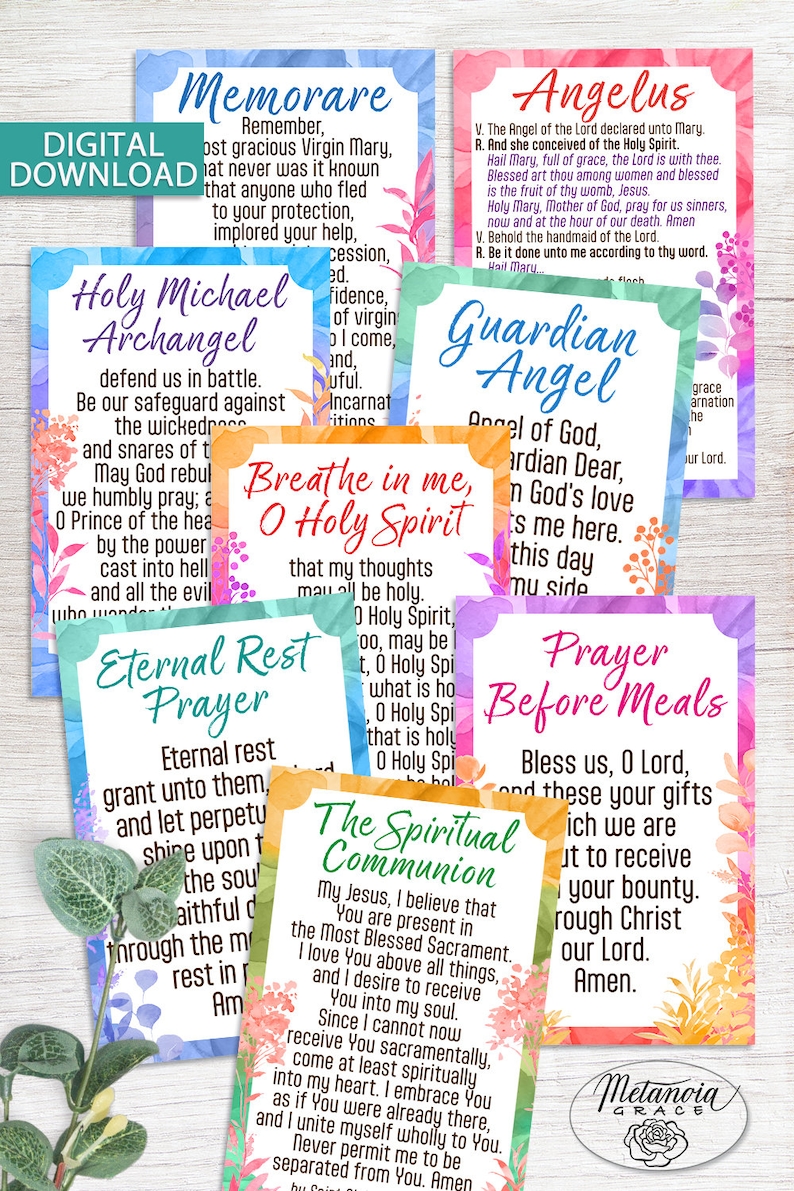 DIGITAL
DOWNLOAD
Memorare
Remember,
gracious Virgin Mary,
never was it known
that anyone who fled
to your protection,
implored your help,
of
I come,
Angelus
V. The Angel of the Lord declared unto Mary.
R. And she conceived of the Holy Spirit.
Hail Mary, full of grace, the Lord is with thee.
Blessed art thou among women and blessed
is the fruit of thy womb, Jesus.
Holy Mary, Mother of God, pray for us sinners,
now and at the hour of our death. Amen
V. Behold the handmaid of the Lord.
R. Be it done unto me according to thy word.
Hail Mary...
grace
the
our Lord.
Holy Michael
Archangel
defend us in battle.
Be our safeguard against
the wickedness
and snares of
May God
we humbly pray;
O Prince of the
by the power
cast into hell
and all the evil
who
Guardian
Angel
Angel of God,
Dear,
God's love
me here.
this day
my side
Breathe in me,
O Holy Spirit
that my thoughts
may all be holy.
O Holy Spirit,
too, may be
O Holy
what is
O Holy
that is holy
be
Eternal Rest
Prayer
Eternal rest
grant unto them,
and let
shine upon
the
through the
rest in
Prayer
Before Meals
Bless us, O Lord,
and these your gifts
which we are
to receive
your bounty.
Through Christ
our Lord.
Amen.
The Spiritual
Communion
My Jesus, I believe that
You are present in
the Most Blessed Sacrament.
I love You above all things,
and I desire to receive
You into my soul.
Since I cannot now
receive You sacramentally,
come at least spiritually
into my heart. I embrace You
as if You were already there,
and I unite myself wholly to You.
Never permit me to be
separated from You. Amen
by Saint
Metanoia
GRACE